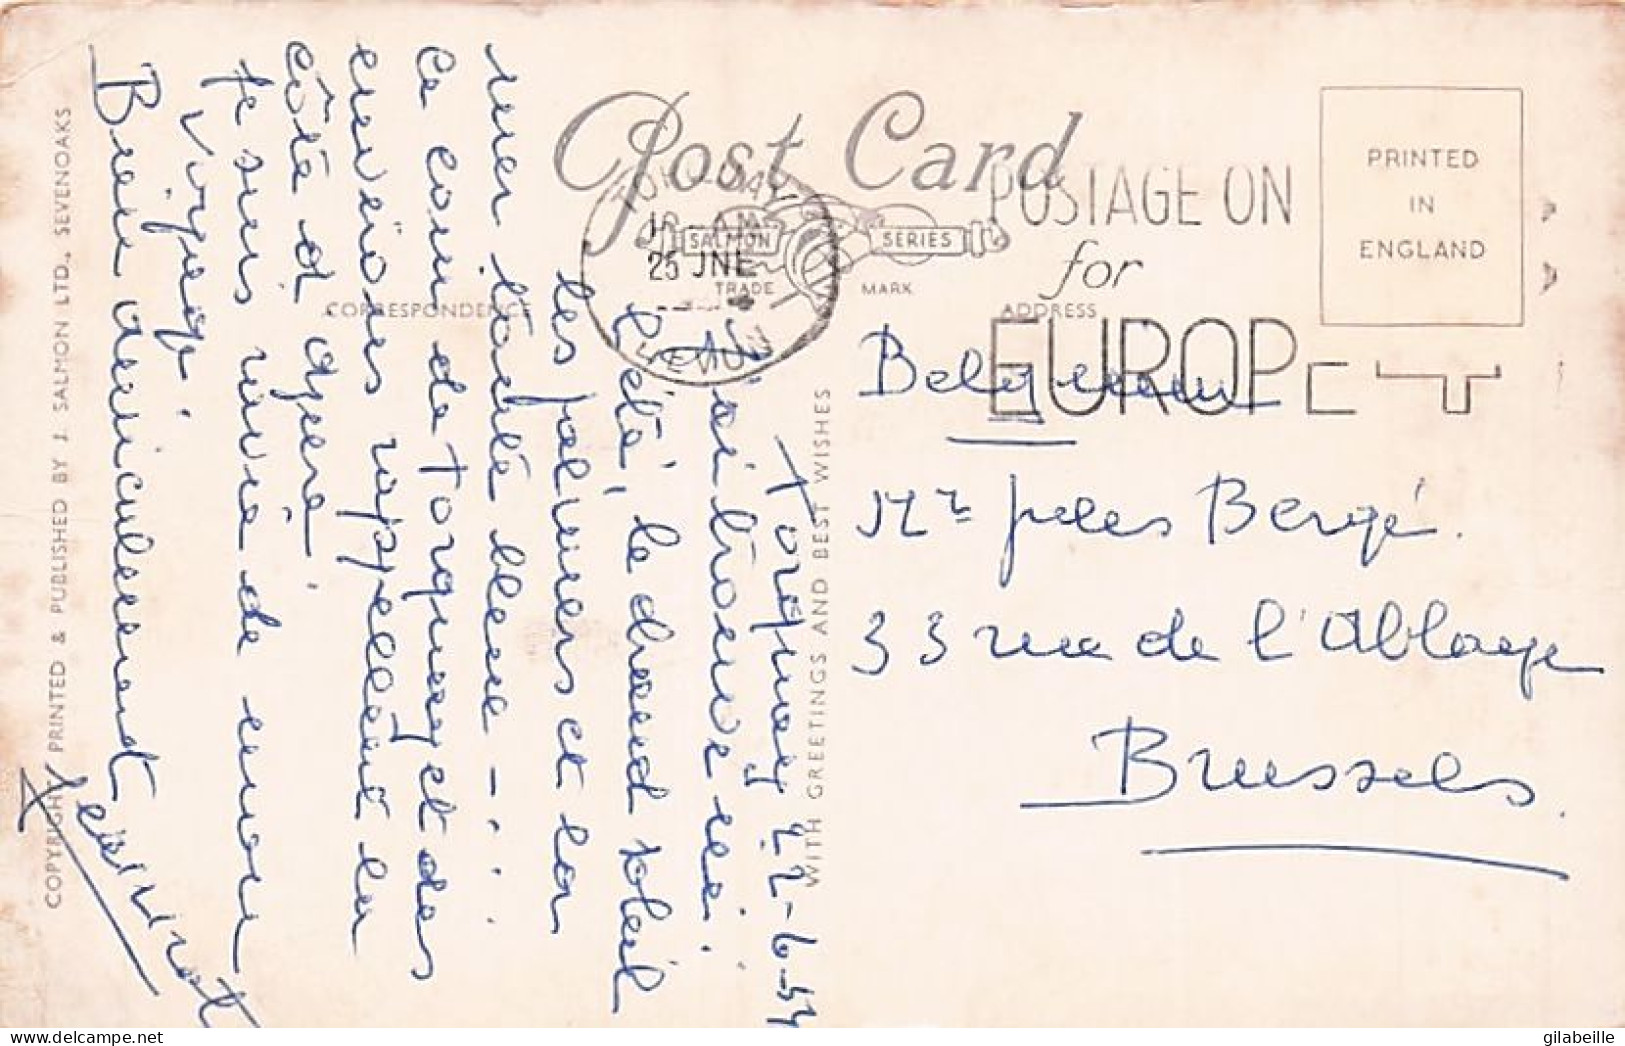 Post Card
PRINTED
IN
ENGLAND
POSTAGE ON
for
EUROPE
TORQUAY
10 - AM
25 JNE
DEVON
SALMON
SERIES
TRADE
MARK
CORRESPONDENCE
ADDRESS
COPYRIGHT, PRINTED & PUBLISHED BY J. SALMON LTD., SEVENOAKS
WITH GREETINGS AND BEST WISHES
Torquay 22-6-54
J'ai trouvé ici
l'été, le chaud soleil
les palmiers et la
mer toute bleue - . .
Ce coin de Torquay et des
environs rappellent la
côte d'azur
Je suis ravie de mon
voyage
Bien amicalement
Belgium
Mr Jules Bergé.
33 rue de l'Abbaye
Brussels.
gilabeille